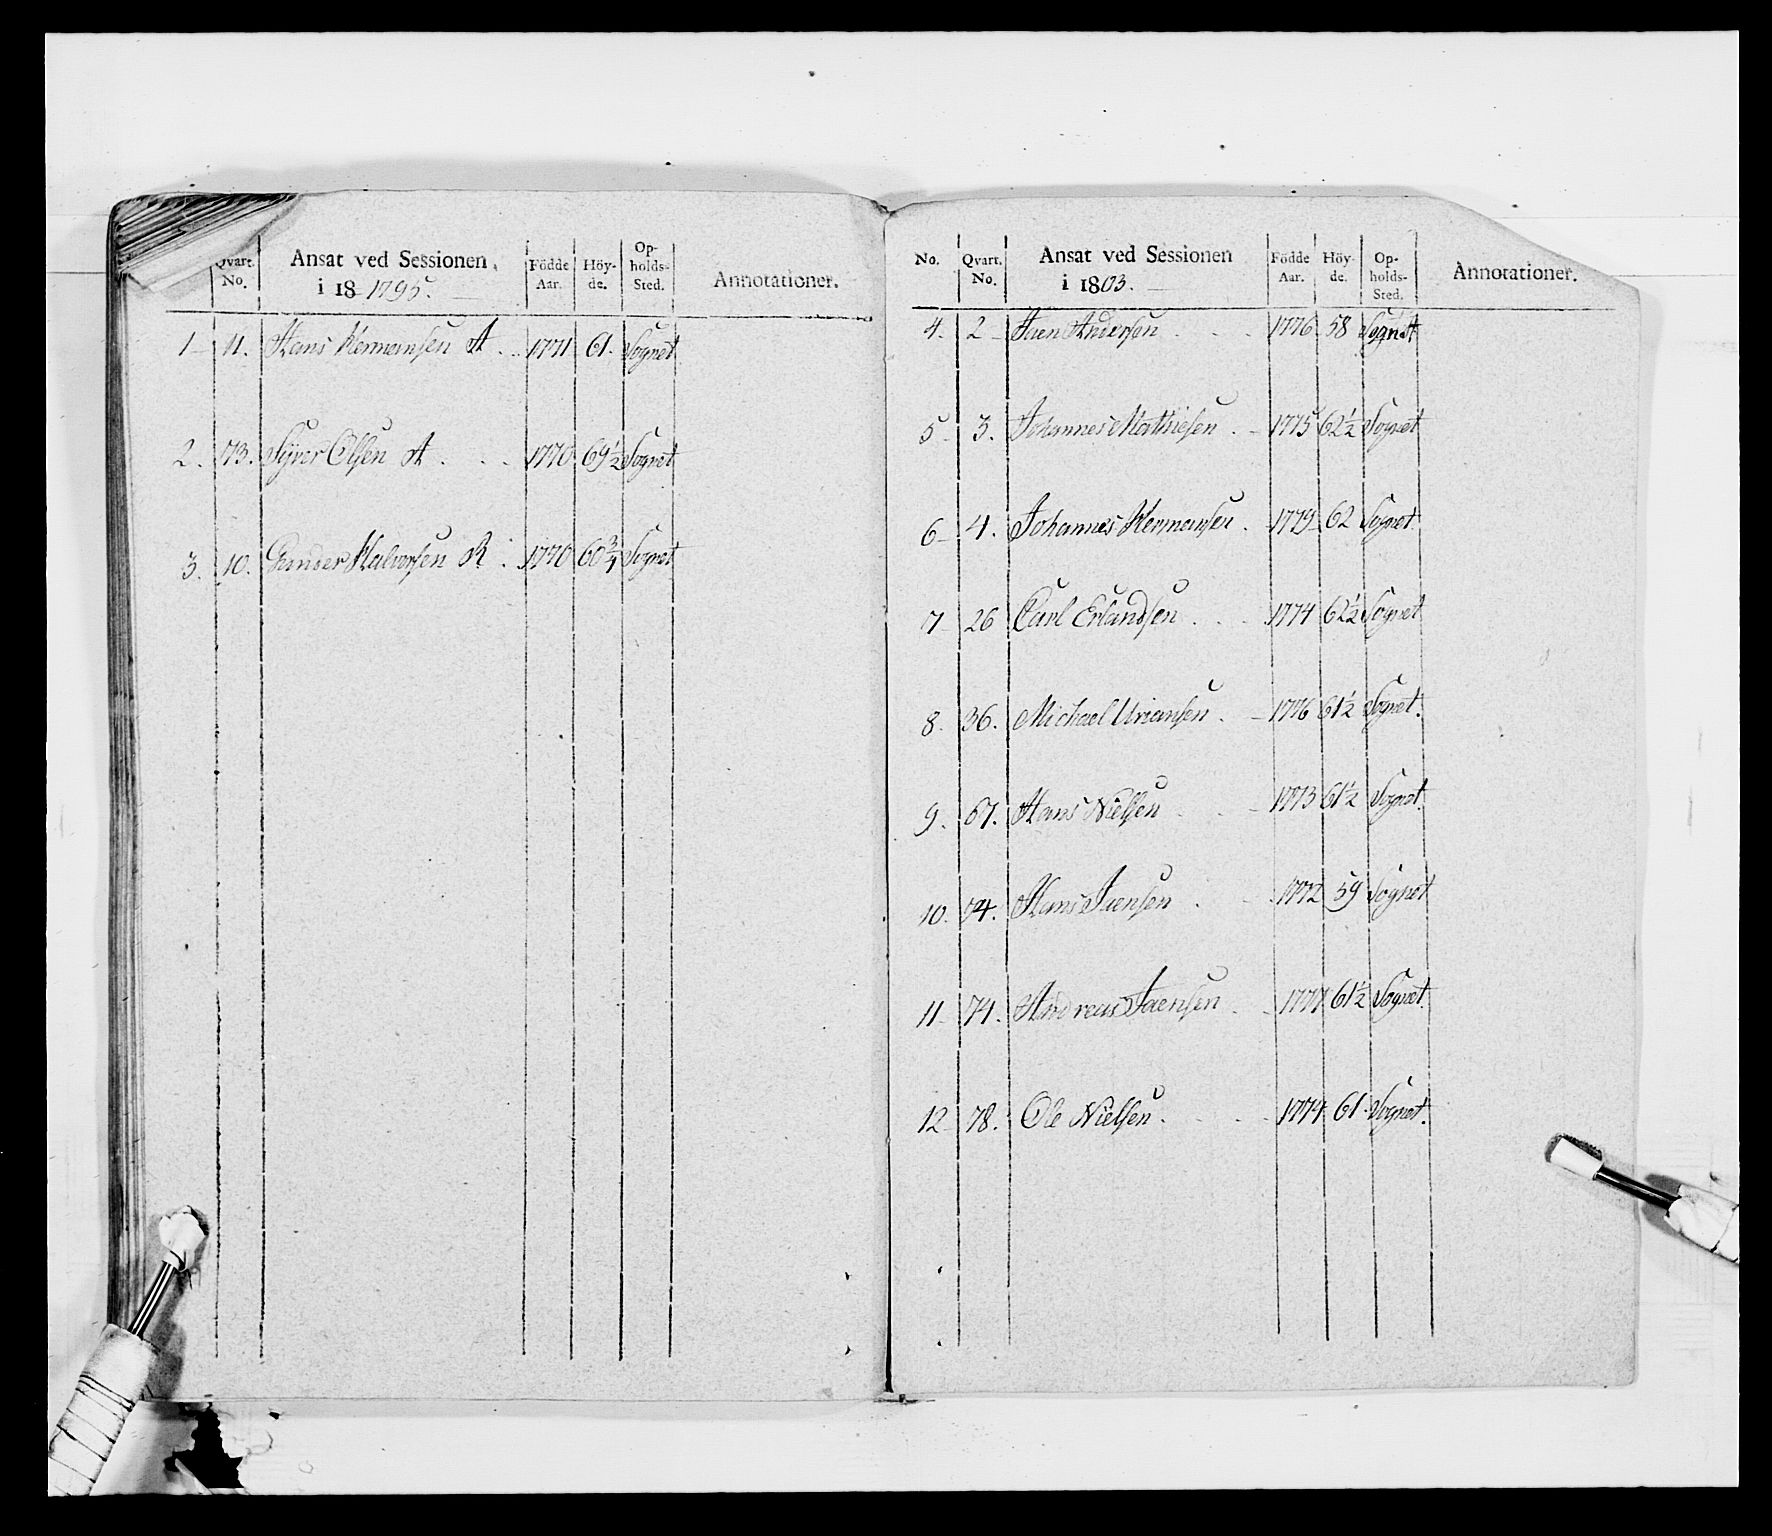 Qvart. No. Ansat ved Sessionen i 18 1795. Födde Aar. Höy- de. Op- holds- Sted. Annotationer.
1 11. Hans Hermansen A 1771 61. Sognet
2. 73. Syver Olsen A 1770 69½ Sognet
3. 10. Gunder Halvorsen R 1770 60¾ Sognet
No. Qvart. No. Ansat ved Sessionen i 1803. Födde Aar. Höy- de. Op- holds- Sted. Annotationer.
4. 2 Jaen Andersen 1776 58 Sognet
5 3. Johannes Mathiesen 1775 62½ Sognet
6 4. Johannes Hermansen 1779 62 Sognet
7 26 Carl Erlandsen 1774 62½ Sognet
8. 36. Michael Uriansen 1776 61½ Sognet.
9. 67. Hans Nielsen 1773 61½ Sognet.
10. 74. Hans Jaensen 1772 59 Sognet
11 74. Andreas Jaensen 1777 61½ Sognet.
12 78. Ole Nielsen. 1774 61 Sognet.